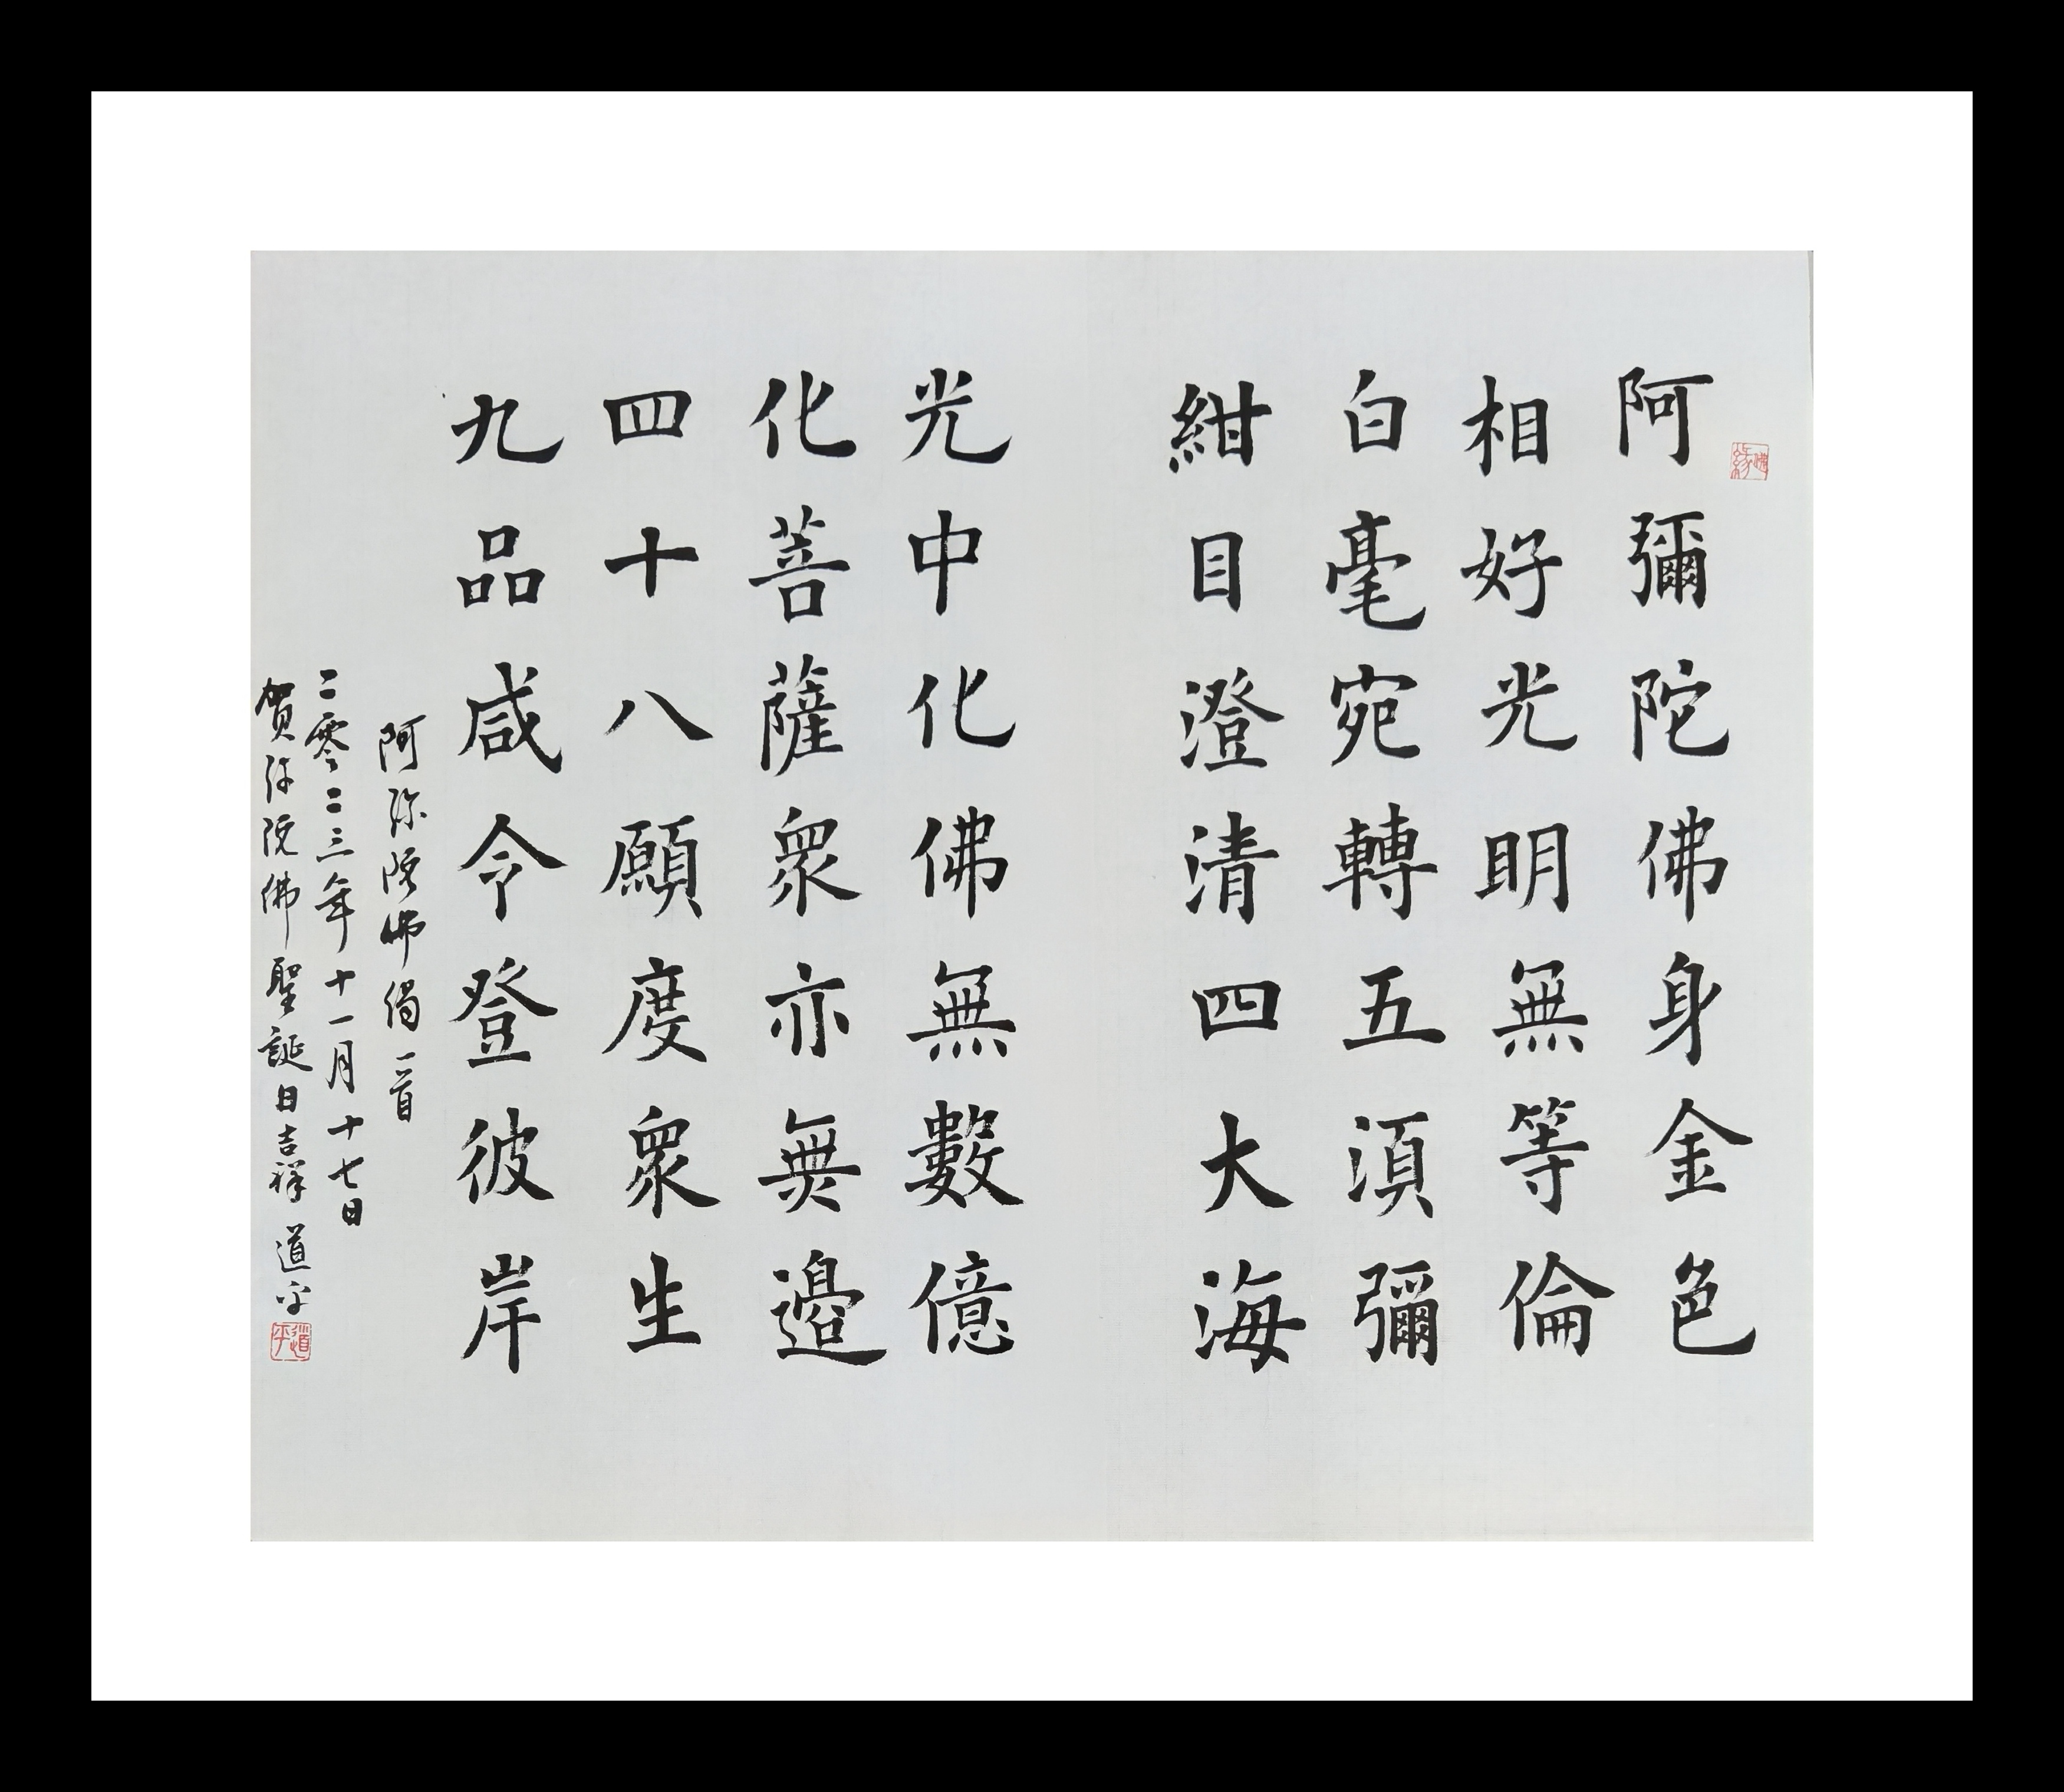 佛緣
阿彌陀佛身金色
相好光明無等倫
白毫宛轉五須彌
紺目澄清四大海
光中化佛無數億
化菩薩衆亦無邊
四十八願度衆生
九品咸令登彼岸
阿弥陀佛偈一首
二零二三年十一月十七日
賀弥陀佛聖誕日吉祥 道平
道平